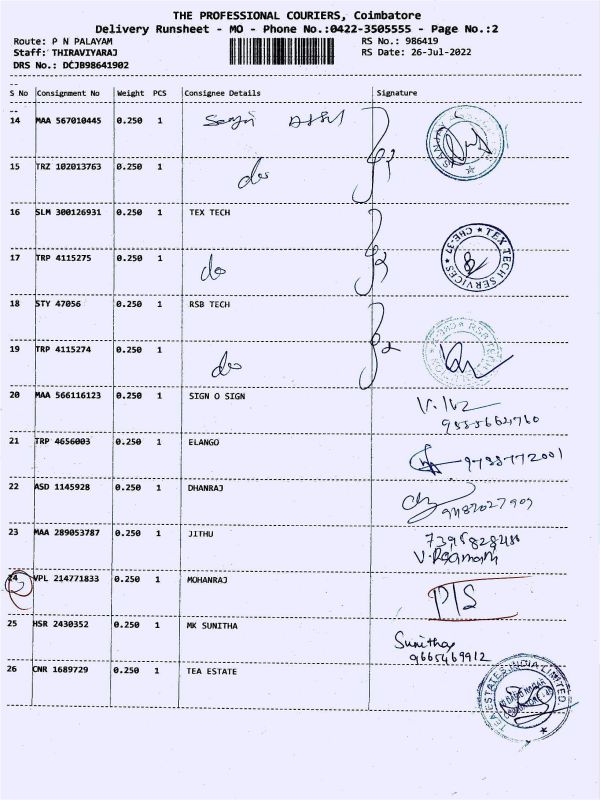 THE PROFESSIONAL COURIERS, Coimbatore
Delivery Runsheet - MO - Phone No.:0422-3505555 - Page No.:2
Route: P N PALAYAM RS No.: 986419
Staff: THIRAVIYARAJ RS Date: 26-Jul-2022
DRS No.: DCJB98641902
S No Consignment No Weight PCS Consignee Details Signature
14 MAA 567010445 0.250 1
15 TRZ 102013763 0.250 1 do
16 SLM 300126931 0.250 1 TEX TECH
TEX TECH SERVICES ★ CBE-37 ★
17 TRP 4115275 0.250 1 do
18 STY 47056 0.250 1 RSB TECH
19 TRP 4115274 0.250 1 do
20 MAA 566116123 0.250 1 SIGN O SIGN
21 TRP 4656003 0.250 1 ELANGO
22 ASD 1145928 0.250 1 DHANRAJ
23 MAA 289053787 0.250 1 JITHU
24 VPL 214771833 0.250 1 MOHANRAJ
D/S
25 HSR 2430352 0.250 1 MK SUNITHA
Sunitha
9665469912
26 CNR 1689729 0.250 1 TEA ESTATE
TEAESTATES INDIA LIMITED